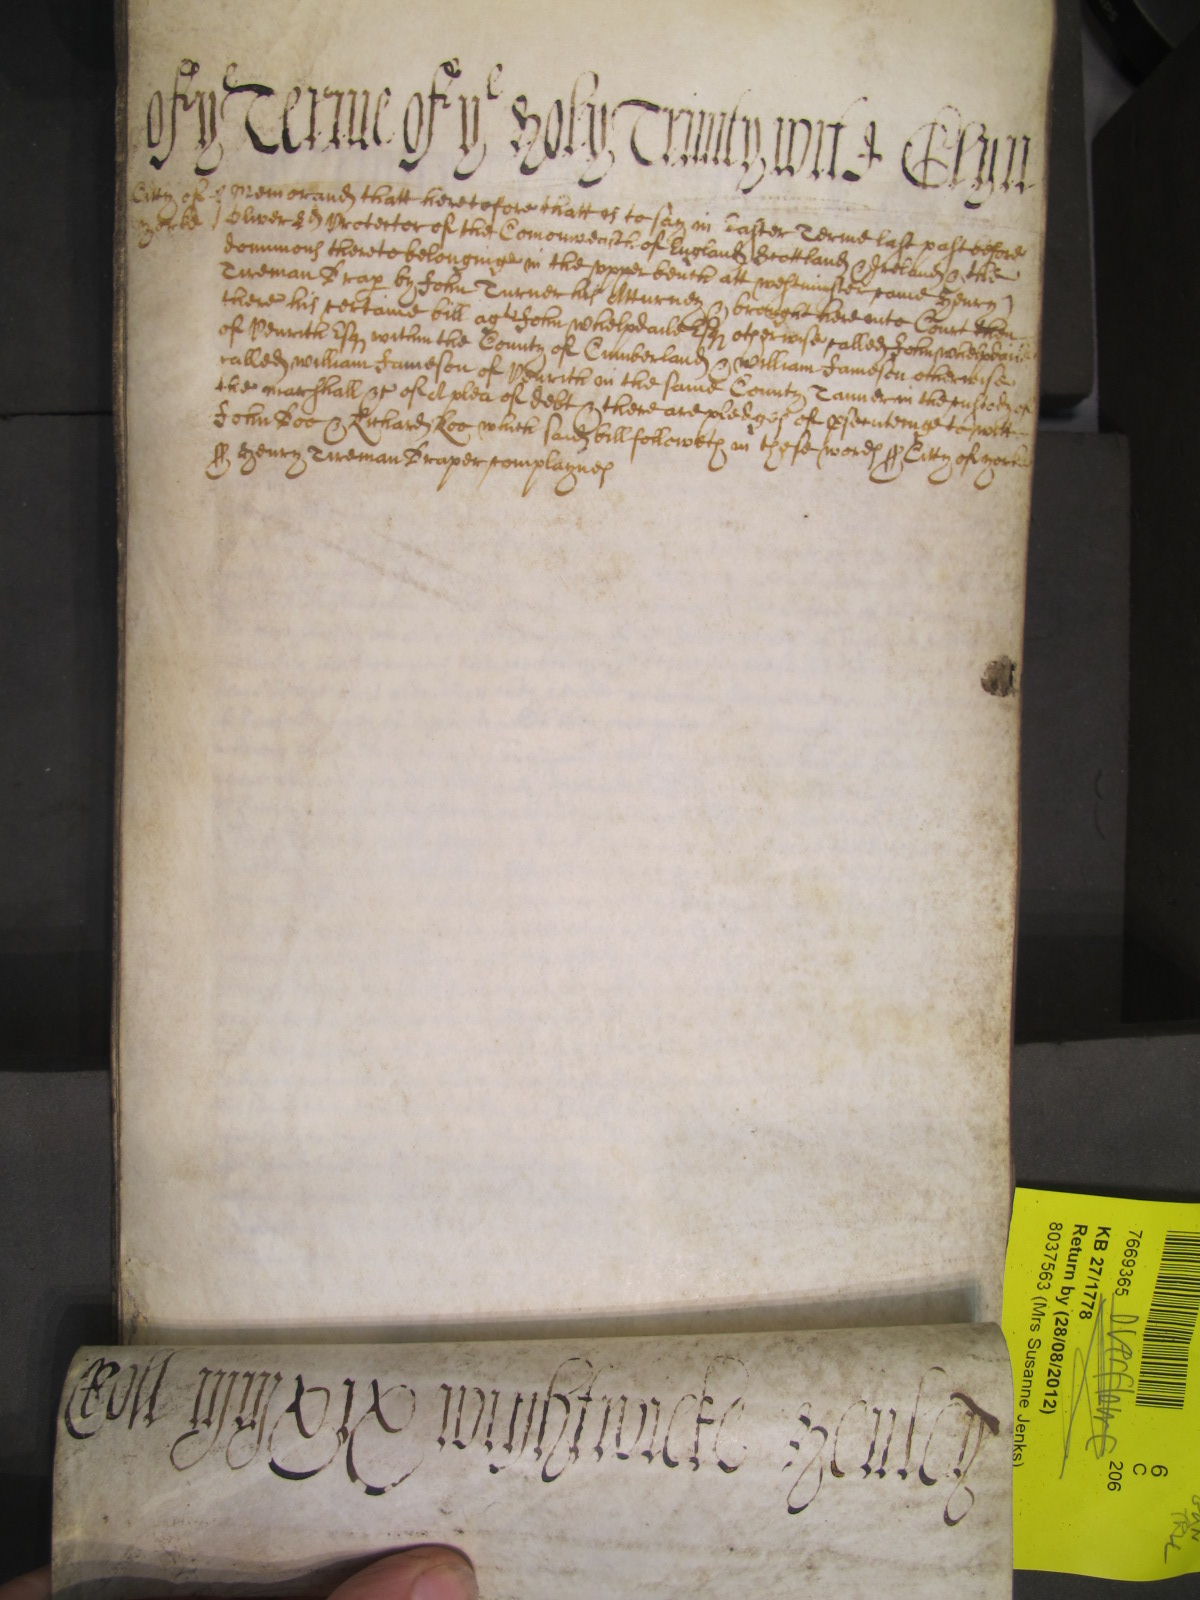 of ye Terme of ye Holy Trinity
City of
Yorke
Memorand thatt heretofore thatt is to say in Easter Terme last past before
Oliver Ld Protector of the Comonwealth of England Scottland & Ireland & the
dominions thereto belonginge in the upper bench att westminster came Henry
Tireman Drap by John Turner his Atturney & brought here into Court then
there his certaine bill agt John whelpdaile Esq otherwise called John whelpdaile
of Penrith Esq within the County of Cumberland & William Jameson otherwise
called william Jameson of Penrith in the same County Tanner in the custody of
the marshall &c of a plea of debt & there are pledges of psecutinge to witt
John Doo & Richard Roo which said bill followeth in these words ss City of yorke
ss Henry Tireman Draper complaynes
wightwicke Henley
7669365
KB 27/1778
Return by (28/08/2012)
8037563 (Mrs Susanne Jenks)
206
6
C